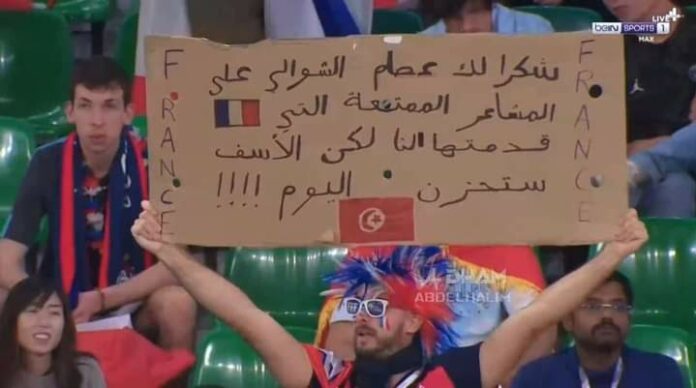 LIVE
beIN SPORTS 1
MAX
FRANCE
شكرا لك عصام الشوالي على
المشاعر الممتعة التي
قدمتها لنا لكن الأسف
ستحزن اليوم !!!!
FRANCE
HESHAM
ABDELHALIM